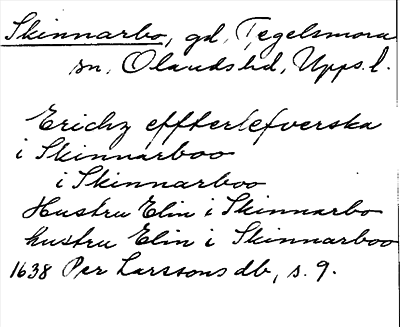 Skinnarbo, gd, Tegelsmora
sn, Olands hd, Upps. l.
Erichz effterlefverska
i Skinnarboo
i Skinnarboo
Hustru Elin i Skinnarbo
hustru Elin i Skinnarboo
1638 Per Larssons db, s. 9.